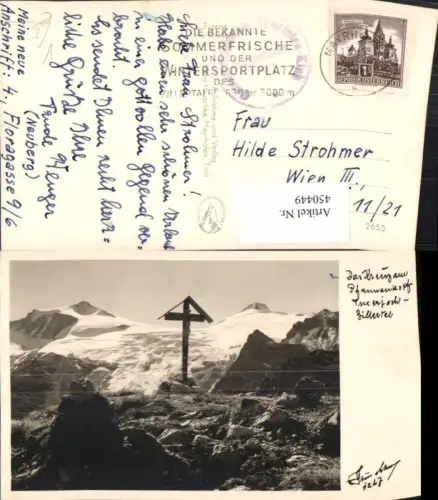 Meine neue
Anschrift: 4., Floragasse 9/6
(Neuberg)
Liebe Frau Strohmer!
Habe einen sehr schönen Urlaub
in einer gottvollen Gegend ver-
bracht.
Es sendet Ihnen recht herz-
liche Grüße Ihre
Trude
DIE BEKANNTE
SOMMERFRISCHE
UND DER
WINTERSPORTPLATZ
DES
ZILLERTALES 630 bis 2000 m
MAYRH
REPUBLIK ÖSTERREICH
Frau
Hilde Strohmer
Wien III.,
11/21
2655
Artikel Nr.
450449
Das Kreuz am
Pfannenkopf
Zillertal
1267